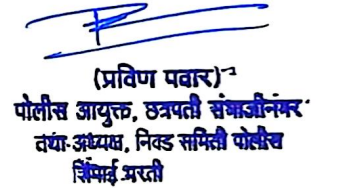 (प्रविण पवार)
पोलीस आयुक्त, छत्रपती संभाजीनगर
तथा-अध्यक्ष, निवड समिती पोलीस
शिपाई भरती